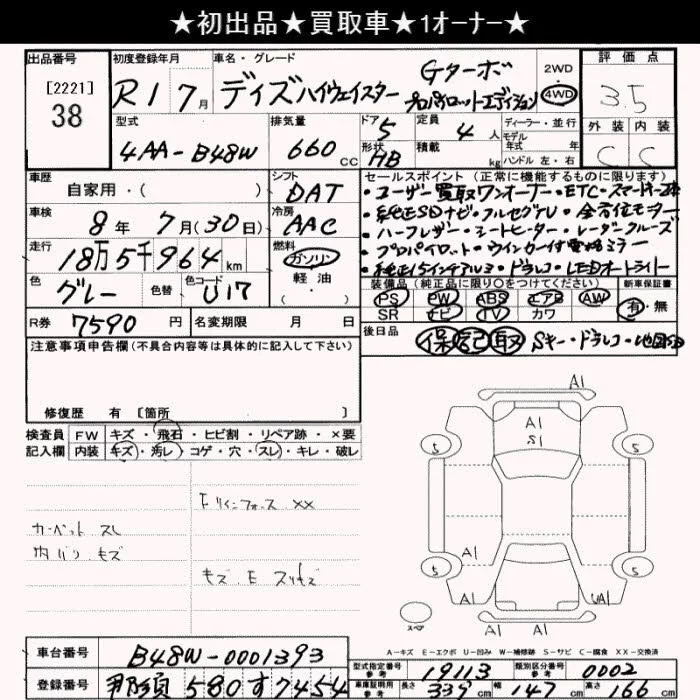 ★初出品★買取車★1オーナー★
出品番号
[2221]
38
初度登録年月
R1 7月
車名・グレード
デイズハイウェイスター
Gターボ
プロパイロットエディション
2WD
4WD
評価点
3.5
外装 内装
C C
型式
4AA-B48W
排気量
660 CC
ドア 5
形状 HB
定員 4 人
積載 kg
ディーラー・並行
モデル
年式 年
ハンドル 左・右
車歴
自家用・( )
シフト
DAT
車検
8年 7月(30日)
冷房
AAC
走行
18万5千964km
燃料
ガソリン
軽・油
( )
色
グレー
色替
色コード
U17
R券 7590 円
名変期限 月 日
セールスポイント(正常に機能するものに限ります)
・ユーザー買取ワンオーナー・ETC・スマートキー2本
・純正SDナビ・フルセグTV・全方位モニター
・ハーフレザー・シートヒーター・レーダークルーズ
・プロパイロット・ウインカー付電格ミラー
・純正15インチアルミ・ドラレコ・LEDオートライト
装備品(純正品に限り○をつけてください)
新車保証書
PS PW ABS エアB AW
SR ナビ TV カワ
有・無
後日品
保 記 取 Sキー・ドラレコ・地図SD
注意事項申告欄(不具合内容等は具体的に記入して下さい)
修復歴 有 [箇所 ]
検査員
記入欄
FW キズ・飛石・ヒビ割・リペア跡・×要
内装 キズ・汚レ・コゲ・穴・スレ・キレ・破レ
Fリインフォース XX
カーペット スレ
内バリ キズ
キズ E スリキズ
A1
A1
S1
5 5
A1
A1
5 5
A1 UA1
スペア
A-キズ E-エクボ U-凹み W-補修跡 S-サビ C-腐食 XX-交換済
車台番号 B48W-0001393
登録番号 那須 580す7454
型式指定番号
参考
19113
類別区分番号
参考
0002
車庫証明用
参考
長さ 339cm 幅 147cm 高さ 166cm